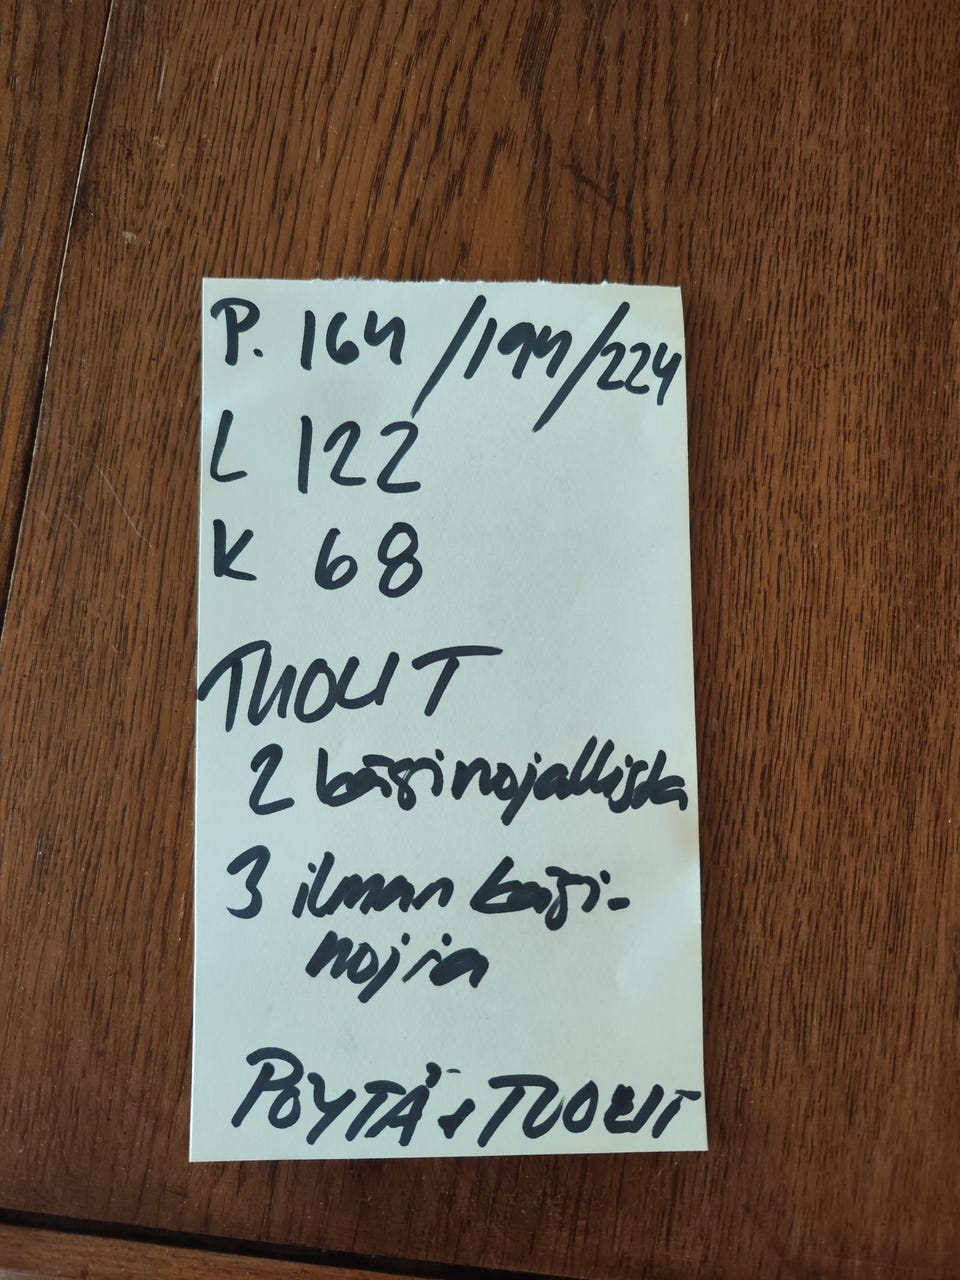 P. 164/194/224
L 122
K 68
TUOLIT
2 käsinojallista
3 ilman käsi-
nojia
PÖYTÄ + TUOLIT